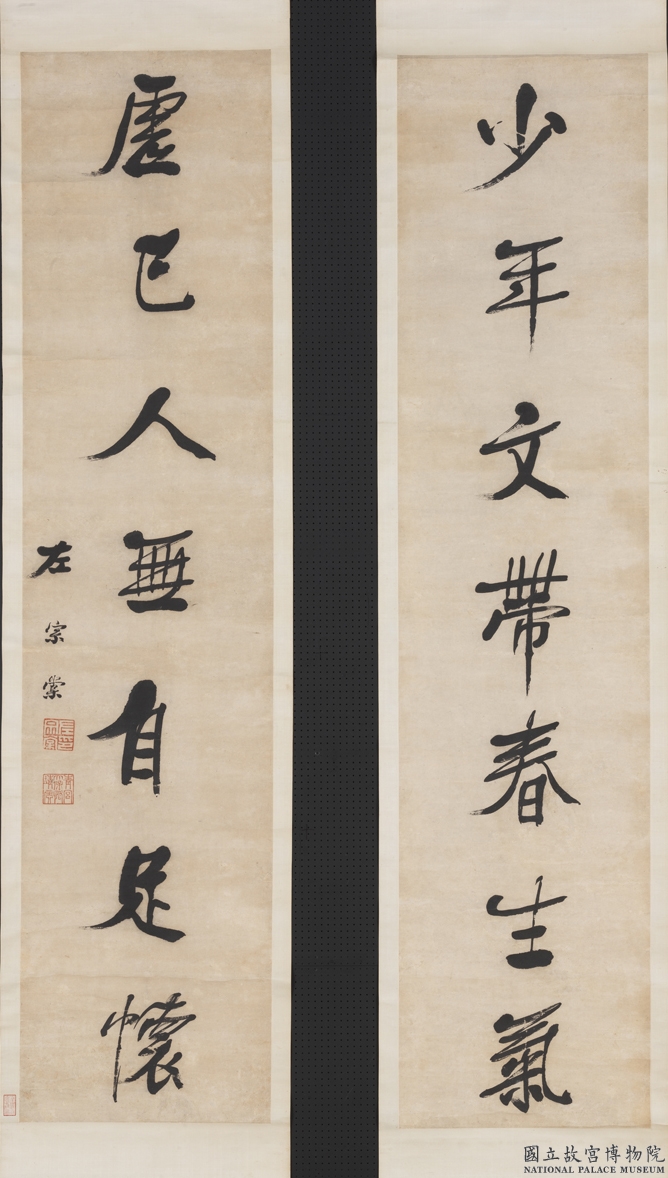 少年文帶春生氣
虛己人無自足懷
左宗棠
國立故宮博物院
NATIONAL PALACE MUSEUM